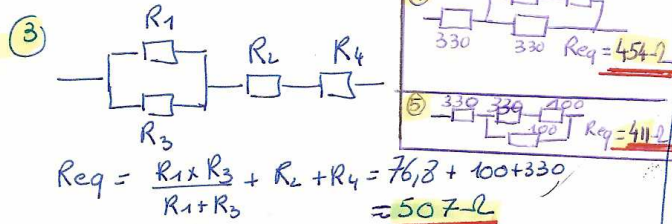 ③
R1
R2
R4
R3
Req = R1 x R3 / R1 + R3 + R2 + R4 = 76,8 + 100 + 330
= 507 Ω
330
330
Req = 454 Ω
⑤
330
330
100
100
Req = 411 Ω